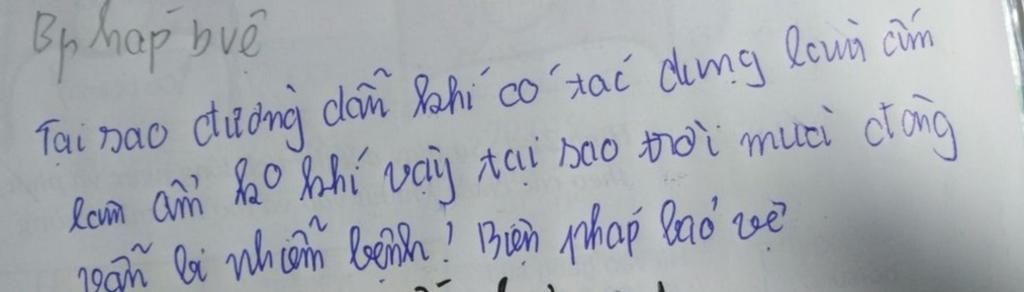 Bp háp b vệ
Tại sao đường dẫn khí có tác dụng làm ấm
làm ẩm ko khí vậy tại sao trời mùa đông
vẫn bị nhiễm bệnh? Biện pháp bảo vệ